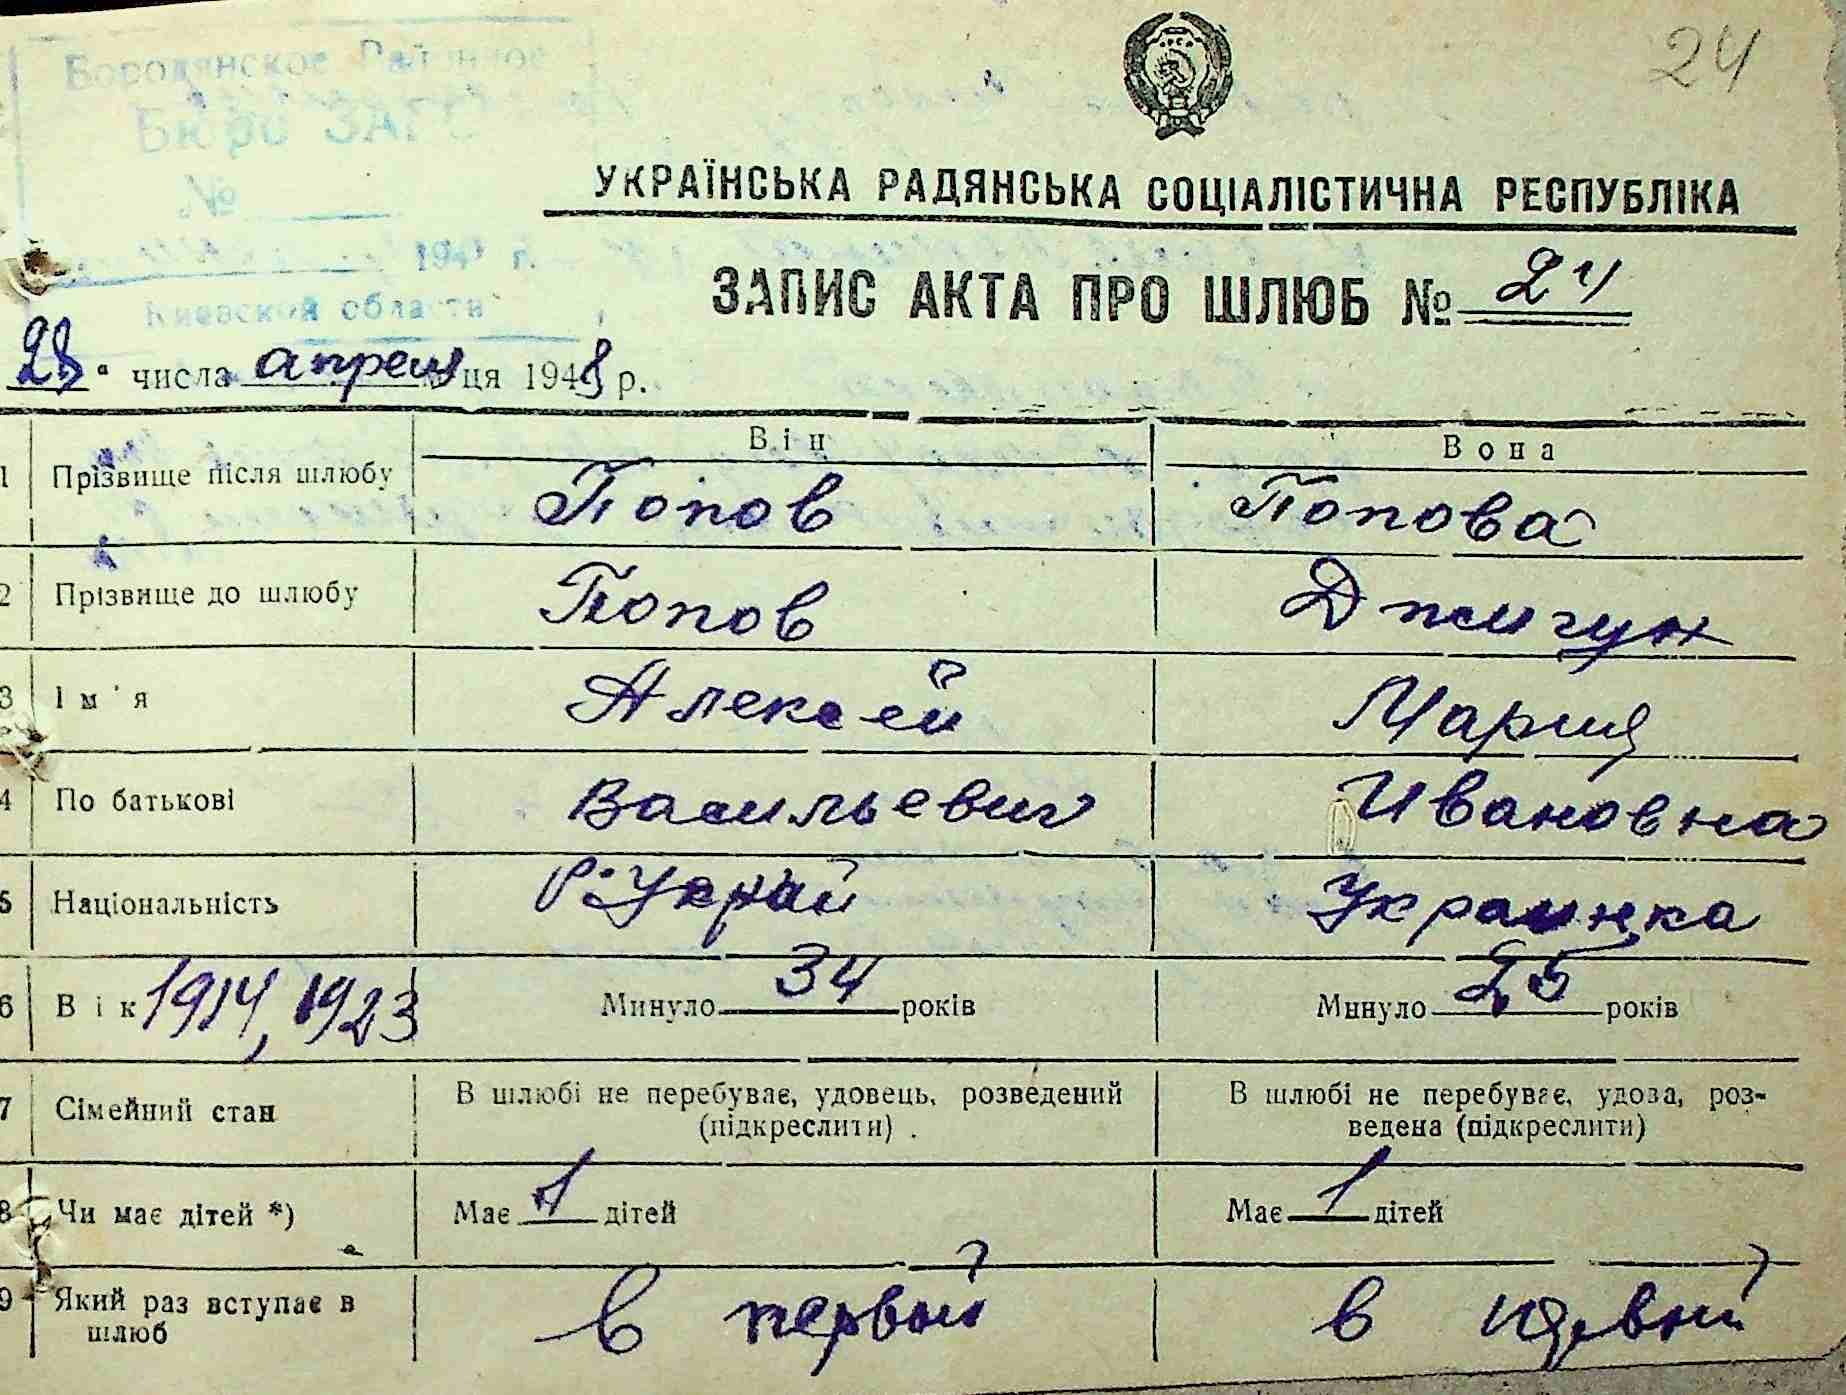 24
Бородянское Районное
Бюро ЗАГС
№
194 г.
Киевской области
УКРАЇНСЬКА РАДЯНСЬКА СОЦІАЛІСТИЧНА РЕСПУБЛІКА
ЗАПИС АКТА ПРО ШЛЮБ № 24
28 числа апреля ця 1948 р.
Він Вона
1 Прізвище після шлюбу Попов Попова
2 Прізвище до шлюбу Попов Джигун
3 Ім'я Алексей Мария
4 По батькові Васильевич Ивановна
5 Національність Украинка
6 Вік 1914, 1923 Минуло 34 років Минуло 25 років
7 Сімейний стан В шлюбі не перебуває, удовець, розведений В шлюбі не перебуває, удова, роз-
(підкреслити) ведена (підкреслити)
8 Чи має дітей *) Має 1 дітей Має 1 дітей
9 Який раз вступає в в первый в первый
шлюб